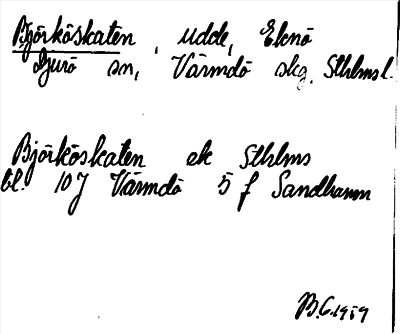 Björköskaten, udde, Eknö
Djurö sn, Värmdö skg. Sthlmsl.
Björköskaten ek Sthlms
bl. 10J Värmdö 5 f Sandhamn
B.C. 1959